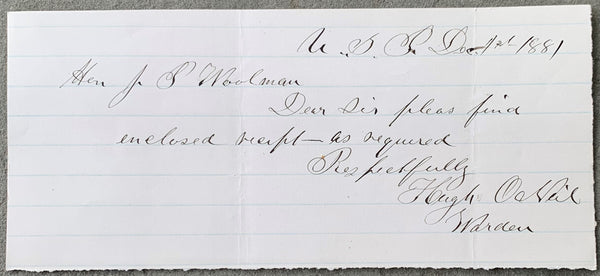 U. S. P. Dec 12th 1881
Hon J P Woolman
Dear Sir pleas find
enclosed recipt — as required
Respectfully
Hugh O Neil
Warden